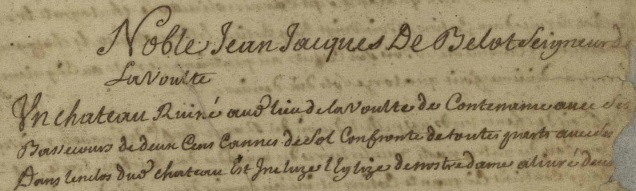 Noble Jean Jacques De Belot Seigneur de
La Voulte
Un chateau Ruiné aud lieu de la Voulte de Contenance avec ses
Bassecours de deux Cens Cannes de Sol Confronte de toutes parts avec ses
Dans lenclos dud chateau Est Incluze l'Eglize de nostre dame alivré deux